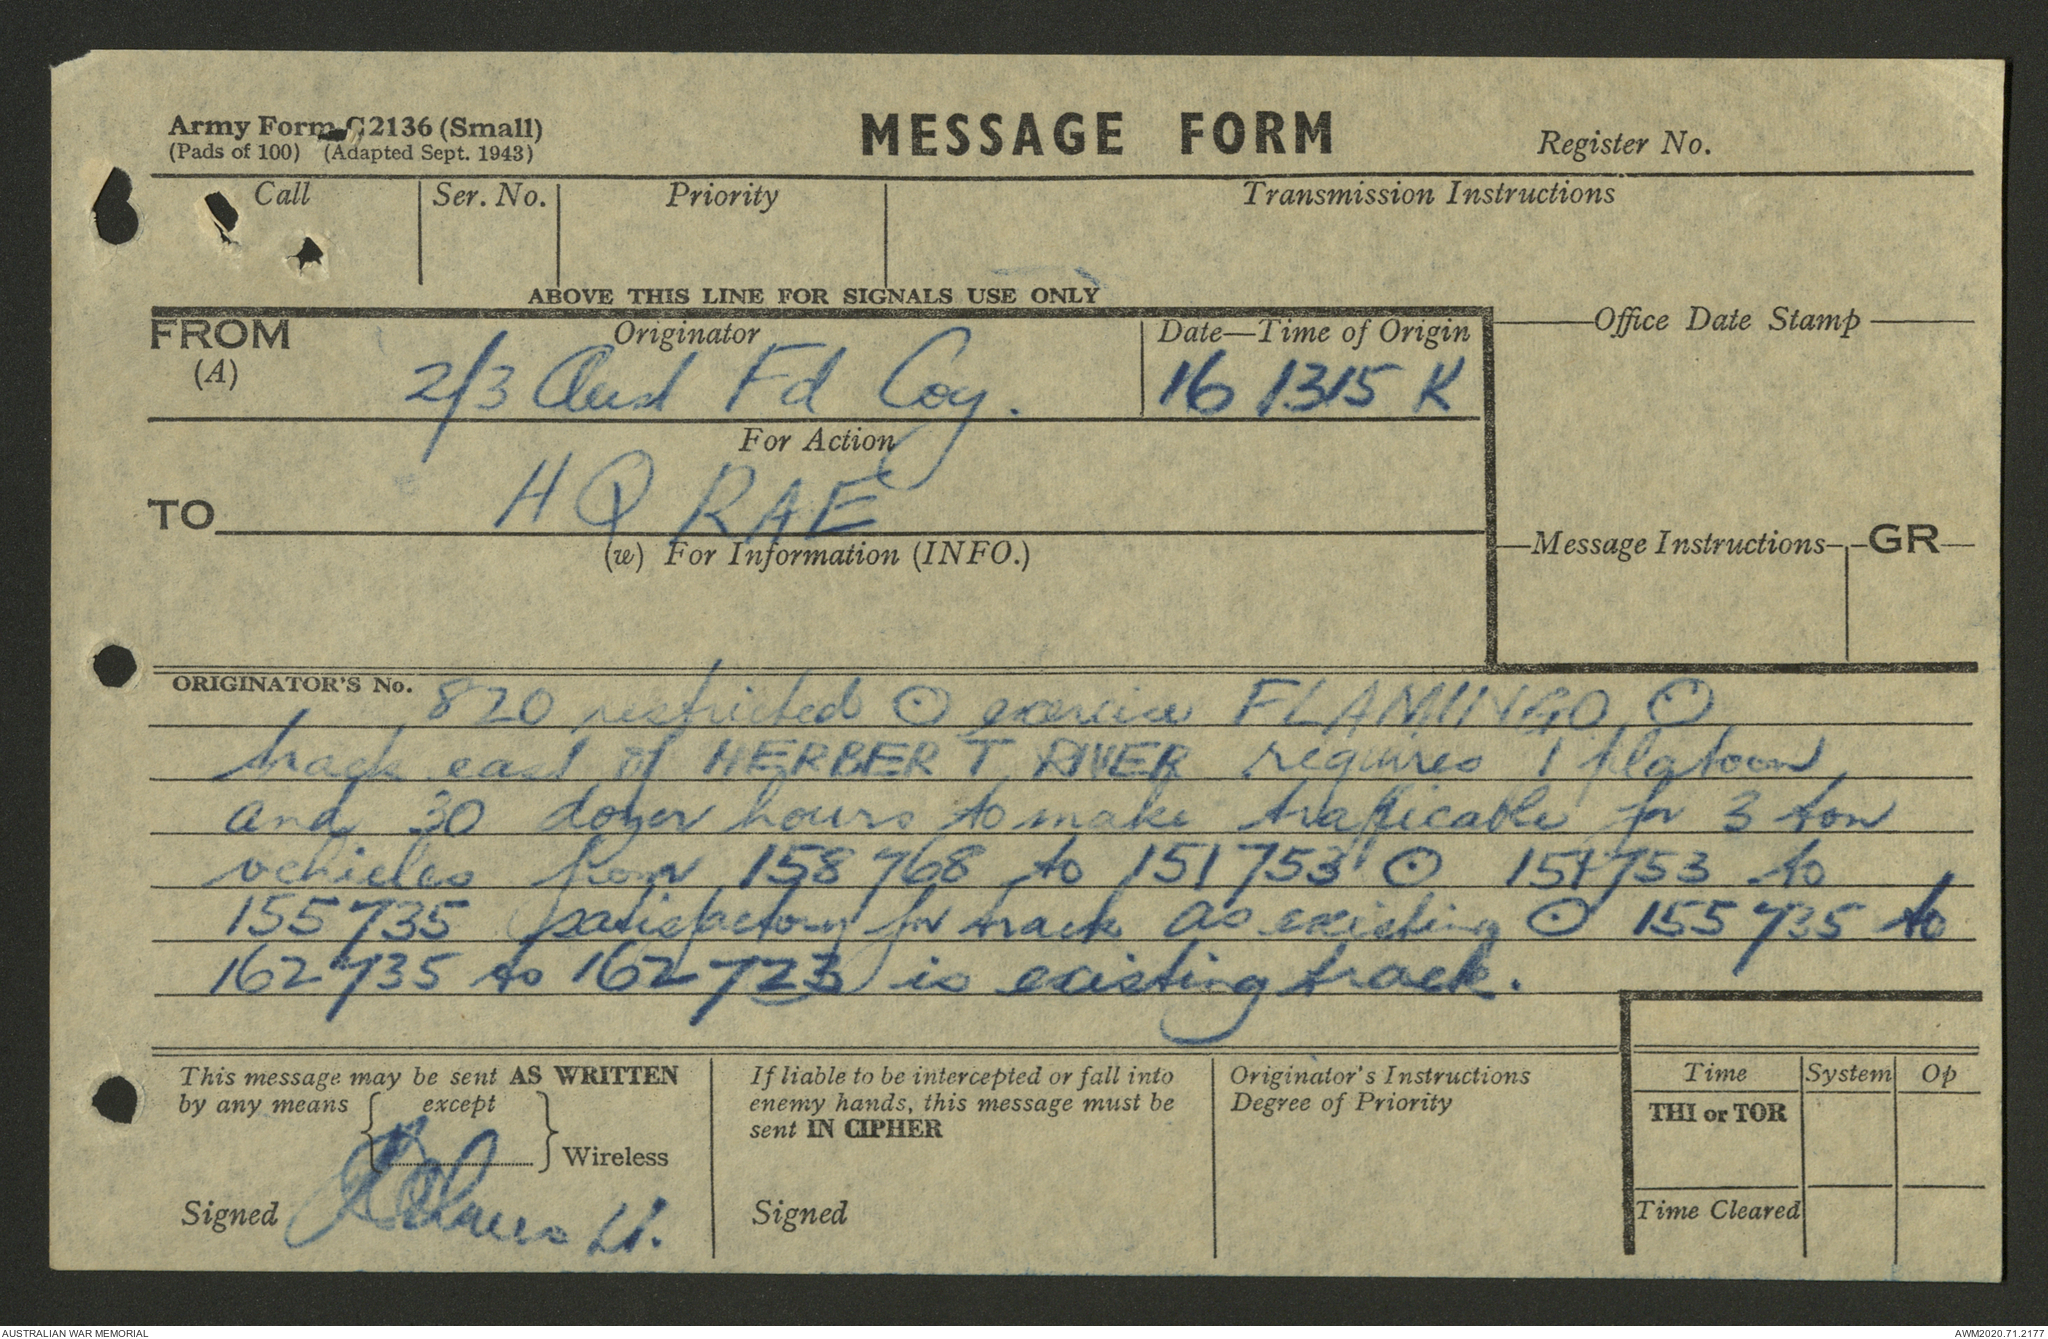 Army Form C2136 (Small)
(Pads of 100) (Adapted Sept. 1943)
MESSAGE FORM
Register No.
Call
Ser. No.
Priority
Transmission Instructions
ABOVE THIS LINE FOR SIGNALS USE ONLY
FROM
(A)
Originator
2/3 Aust Fd Coy.
Date—Time of Origin
16 1315 K
Office Date Stamp
For Action
TO
H Q RAE
(w) For Information (INFO.)
Message Instructions
GR
ORIGINATOR'S No.
820 restricted ⊙ exercise FLAMINGO ⊙
track east of HERBERT RIVER requires 1 platoon
and 30 dozer hours to make traficable for 3 ton
vehicles from 158768 to 151753 ⊙ 151753 to
155735 satisfactory for track as existing ⊙ 155735 to
162735 to 162723 is existing track.
This message may be sent AS WRITTEN
by any means { except } Wireless
Signed Lt.
If liable to be intercepted or fall into
enemy hands, this message must be
sent IN CIPHER
Signed
Originator's Instructions
Degree of Priority
Time
System
Op
THI or TOR
Time Cleared
AUSTRALIAN WAR MEMORIAL
AWM2020.71.2177